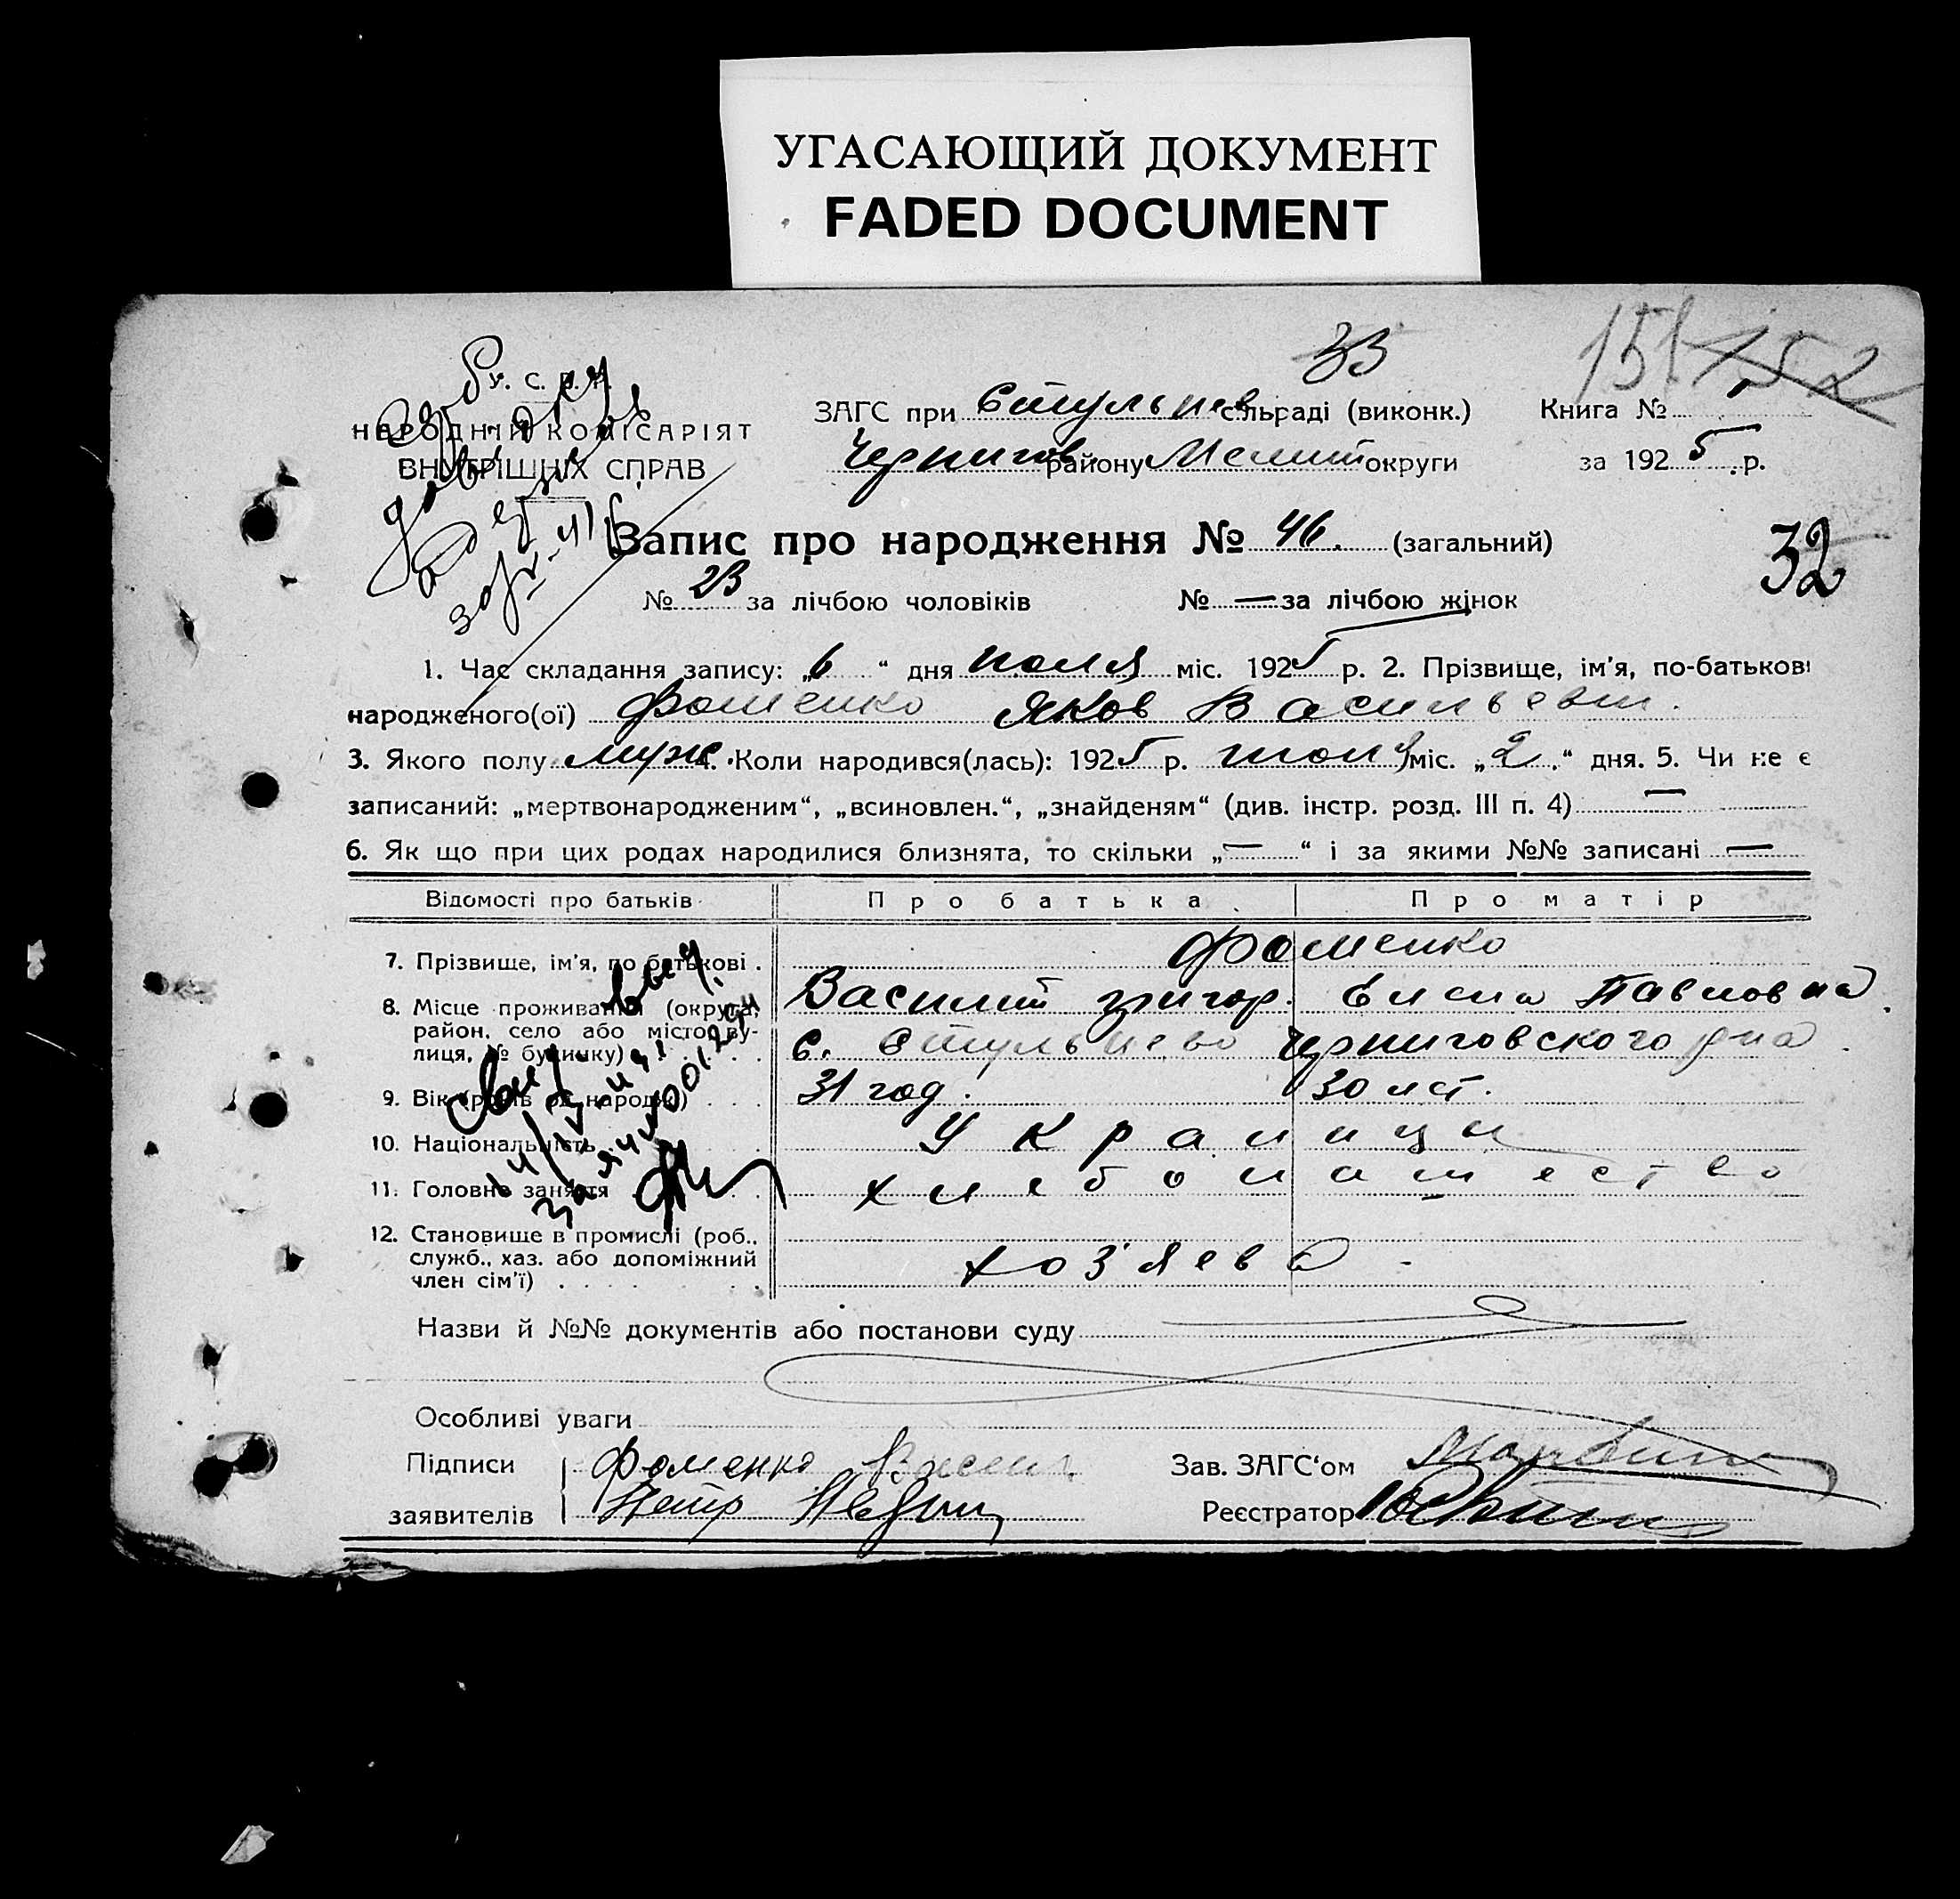 УГАСАЮЩИЙ ДОКУМЕНТ
FADED DOCUMENT
33
151 152
У. С. Р. Р.
НАРОДНІЙ КОМІСАРІЯТ
ВНУТРІШНІХ СПРАВ
ЗАГС при Стульнев. сільраді (виконк.) Книга №
Чернигов. району Мелит округи за 1925 р.
Запис про народження № 46. (загальний)
32
№ 23 за лічбою чоловіків № — за лічбою жінок
1. Час складання запису: „6“ дня июля міс. 1925 р. 2. Прізвище, ім'я, по-батькові
народженого(ої) Фоменко Яков Васильевич.
3. Якого полу муж. 4. Коли народився(лась): 1925 р. июля міс. „2.“ дня. 5. Чи не є
записаний: „мертвонародженим“, „всиновлен.“, „знайденям“ (див. інстр. розд. III п. 4) —
6. Як що при цих родах народилися близнята, то скільки „—“ і за якими №№ записані —
Відомості про батьків Про батька Про матір
7. Прізвище, ім'я, по батькові . Фоменко
Василий Григор. Елена Павловна
8. Місце проживання (округа,
район, село або місто, ву-
лиця, № будинку)
с. Стульнево Черниговского р-на
9. Вік (років од народж.) 31 год. 30 лет.
10. Національність Украинцы
11. Головне заняття хлебопашество
12. Становище в промислі (роб.,
служб., хаз. або допоміжний
член сім'ї)
хозяева
Назви й №№ документів або постанови суду
Особливі уваги
Підписи Фоменко Васил Зав. ЗАГС'ом
заявителів Петр Реєстратор